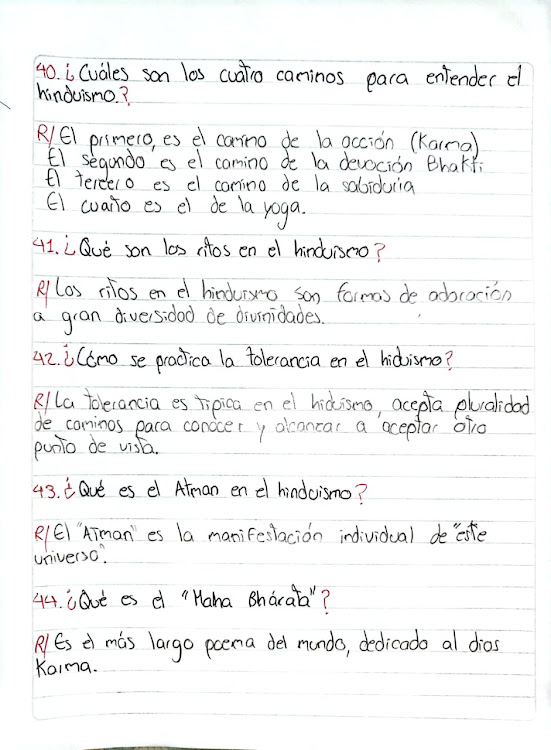 40. ¿Cuáles son los cuatro caminos para entender el
hinduismo.?
R/ El primero, es el camino de la acción (Karma)
El segundo es el camino de la devoción Bhakti
El tercero es el camino de la sabiduria
El cuarto es el de la yoga.
41. ¿Qué son los ritos en el hinduismo?
R/ Los ritos en el hinduismo son formas de adoración
a gran diversidad de divinidades.
42. ¿Cómo se practica la tolerancia en el hiduismo?
R/ La tolerancia es tipica en el hiduismo, acepta pluralidad
de caminos para conocer y alcanzar a aceptar otro
punto de vista.
43. ¿Qué es el Atman en el hinduismo?
R/ El "Atman" es la manifestación individual de "este
universo".
44. ¿Qué es el "Maha Bhárata"?
R/ Es el más largo poema del mundo, dedicado al dios
Karma.